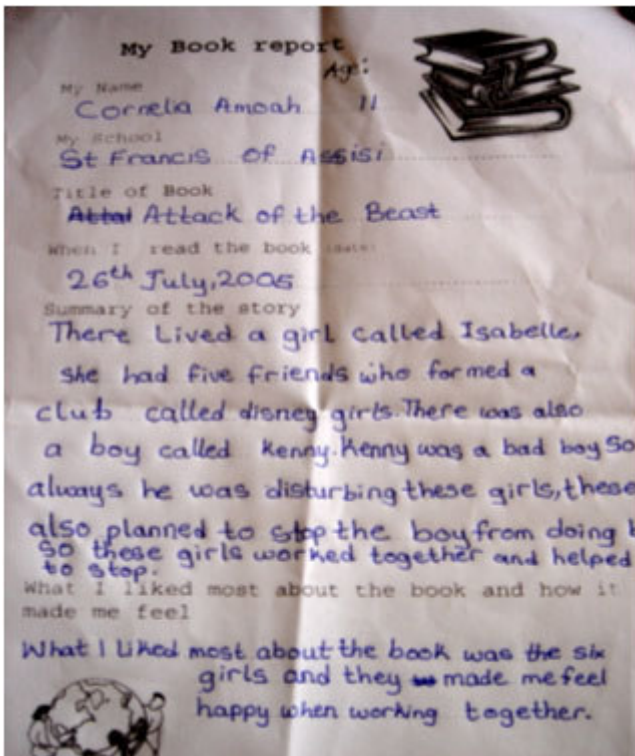 My Book report
Age:
My Name
Cornelia Amoah 11
My School
St Francis of Assisi
Title of Book
Attal Attack of the Beast
When I read the book (date)
26th July, 2005
Summary of the story
There Lived a girl called Isabelle,
she had five friends who formed a
club called disney girls. There was also
a boy called Kenny. Kenny was a bad boy So
always he was disturbing these girls, these
also planned to stop the boy from doing
so these girls worked together and helped
to stop.
What I liked most about the book and how it
made me feel
What I Liked most about the book was the six
girls and they made me feel
happy when working together.